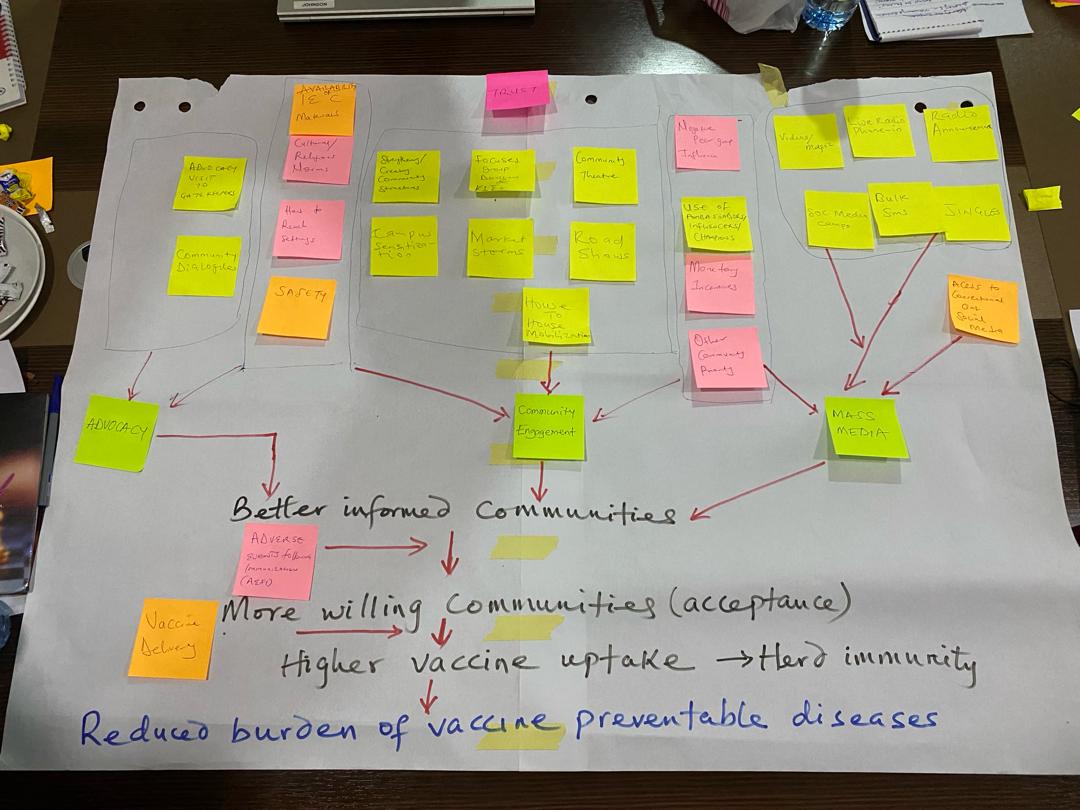 TRUST
AVAILABILITY
OF
I E C
Materials
Cultural/
Religious
Norms
How to
Reach
Settings
SAFETY
ADVOCACY
VISIT
TO
GATE KEEPERS
Community
Dialogues
Strengthening/
Creating
Community
Structures
Focused
Group
Discussion
Community
Theatre
Campus
Sensitiza-
tion
Market
Storms
Road
Shows
House
To
House
Mobilization
Negative
Peer group
Influence
USE OF
AMBASSADORS/
INFLUENCERS/
CHAMPIONS
Monetary
Incentives
Other
Community
Priority
Live Radio
Phone in
Radio
Announcement
SOC Media
Bulk
Sms
JINGLES
Access to
Social
Media
ADVOCACY
Community
Engagement
MASS
MEDIA
Better informed communities
ADVERSE
events following
immunization
(AEFI)
More willing communities (acceptance)
Vaccine
Delivery
Higher vaccine uptake → Herd immunity
Reduced burden of vaccine preventable diseases